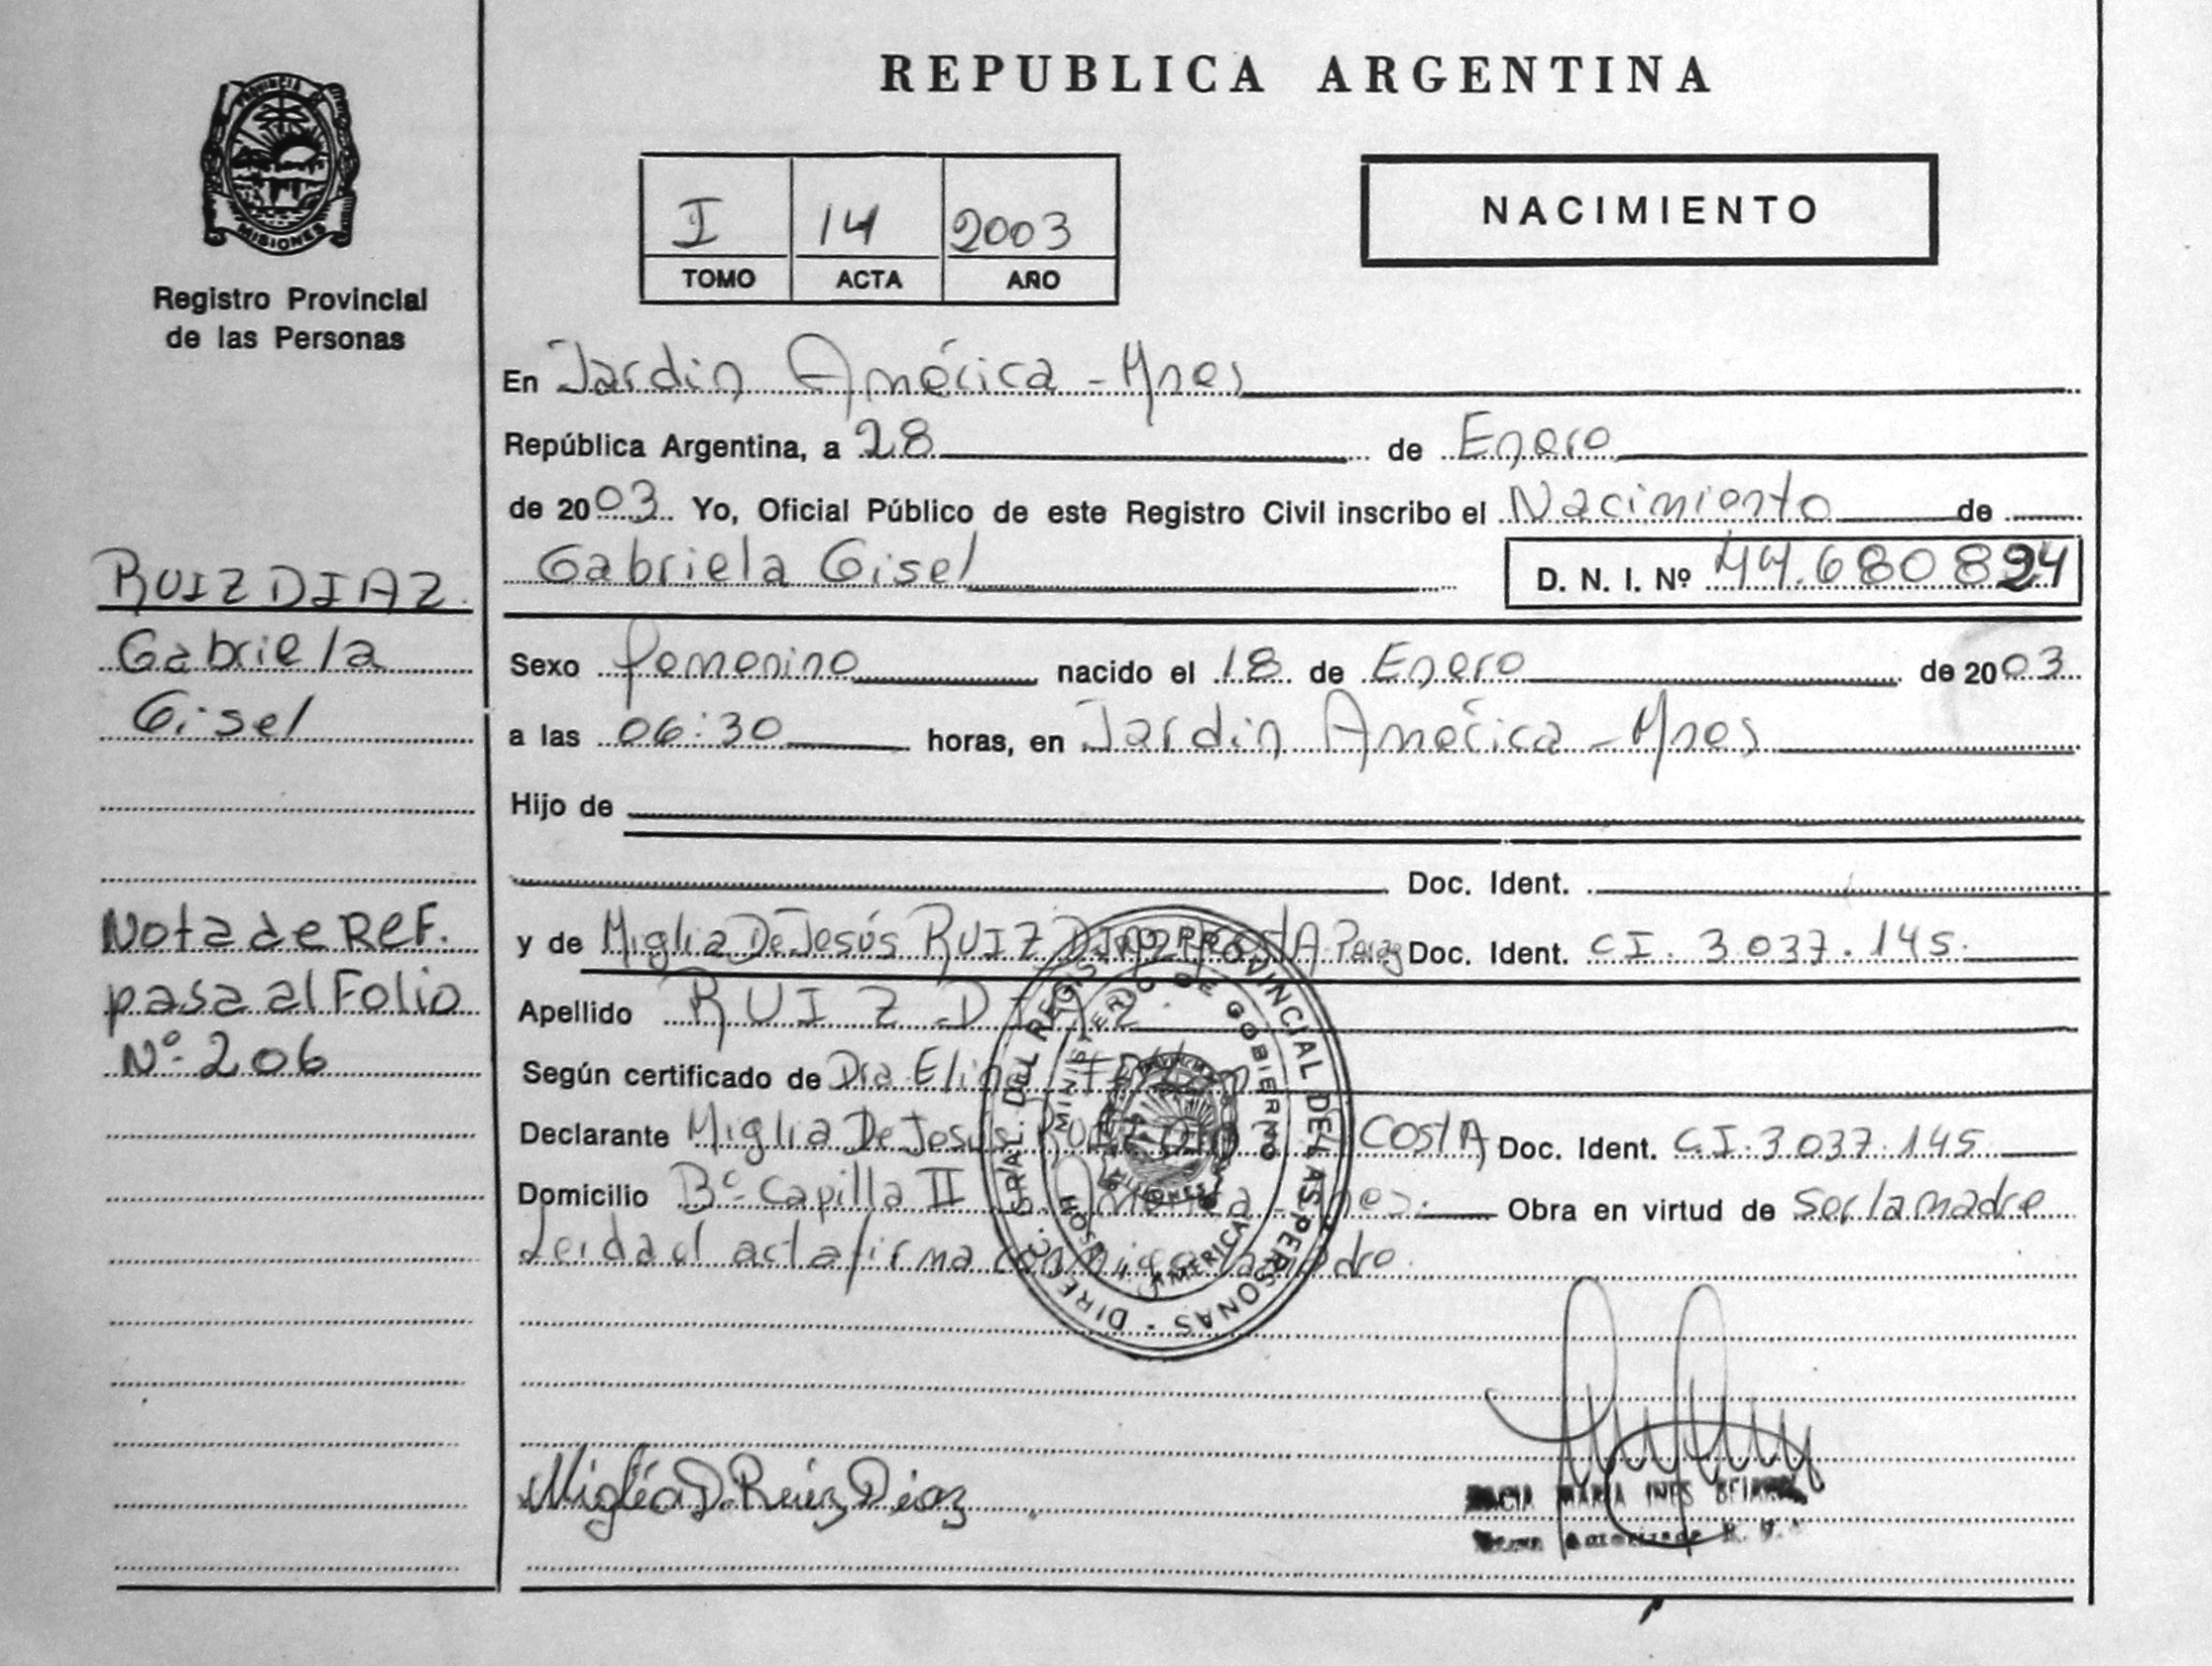 REPUBLICA ARGENTINA
PROVINCIA DE
MISIONES
Registro Provincial
de las Personas
I 14 2003
TOMO ACTA AÑO
NACIMIENTO
En Jardin América - Mnes
República Argentina, a 28 de Enero
de 2003 Yo, Oficial Público de este Registro Civil inscribo el Nacimiento de
Gabriela Gisel D. N. I. Nº 44.680824
RUIZ DIAZ
Gabriela
Gisel
Sexo femenino nacido el 18 de Enero de 2003
a las 06:30 horas, en Jardin América - Mnes
Hijo de
Doc. Ident.
y de Miglia De Jesús RUIZ DIAZ Doc. Ident. CI. 3.037.145
Apellido RUIZ DIAZ
Según certificado de Dra
Declarante Miglia De Jesús RUIZ DIAZ COSTA Doc. Ident. C.I. 3.037.145
Domicilio Bº Capilla II América - Mnes. Obra en virtud de ser la madre
Leida el acta firma conmigo la madre
Nota de REF.
pasa al Folio
Nº 206
DIREC. GRAL. DEL REGISTRO PROVINCIAL DE LAS PERSONAS
MINISTERIO DE GOBIERNO
AMERICA
MISIONES
Miglia D. Ruiz Diaz
MARIA INES